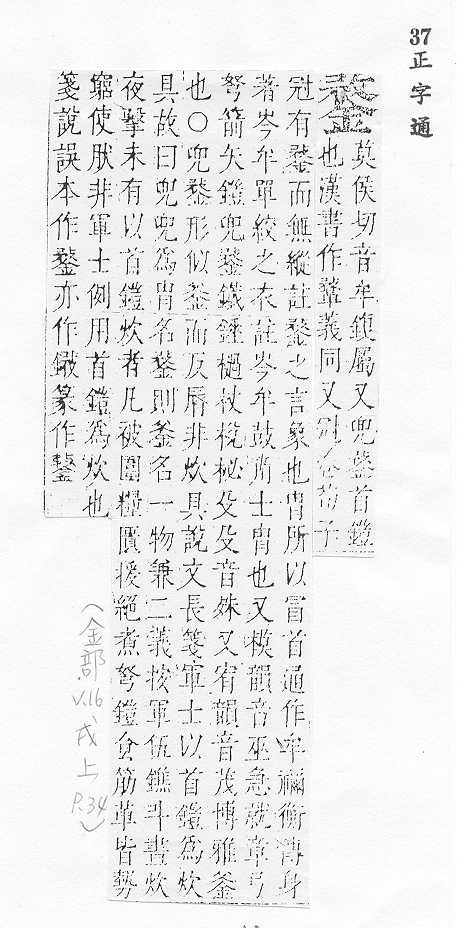 37正字通
鍪
莫侯切音牟鍑屬又兜鍪首鎧
也漢書作鞪義同又冠名荀子
冠有鍪而無縰註鍪之言蒙也冑所以冒首通作牟禰衡傳身
著岑牟單絞之衣註岑牟鼓角士冑也又模韻音巫急就章弓
弩箭矢鎧兜鍪鐵錘檛杖梲柲殳殳音殊又宥韻音茂博雅釜
也○兜鍪形似釜而反脣非炊具說文長箋軍士以首鎧為炊
具故曰兜兜為冑名鍪則釜名一物兼二義按軍伍鐎斗晝炊
夜擊未有以首鎧炊者凡被圍糧匱援絕煮弩鎧食筋革皆勢
窮使肰非軍士例用首鎧為炊也
箋說誤本作鍪亦作鏉篆作鍪
(金部
V.16
戌上
P.34)